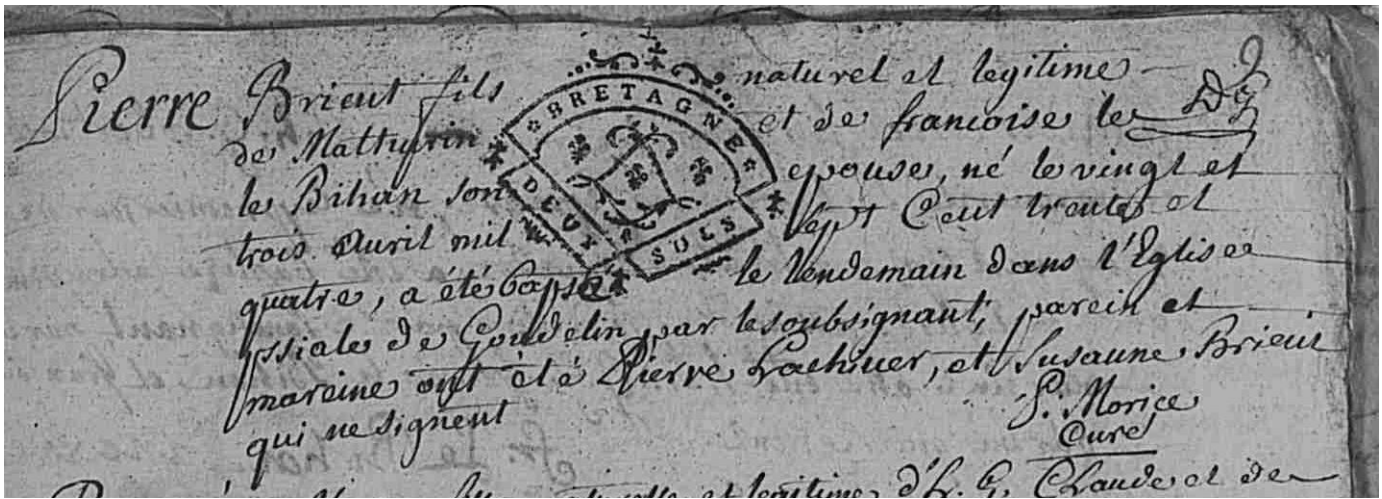 Pierre Brieut fils naturel et legitime
de Mathurin et de francoise le Dg
le Bihan son epouse, né le vingt et
trois Auril mil sept Cent trente et
quatre, a été bapsé le lendemain dans l'Eglise
pssiale de Goudelin par le soubsignant, parein et
mareine ont été Pierre Lachiuer, et Susanne Brieut
qui ne signent
P. Morice
Curé
BRETAGNE
DEUX SOLS
et legitime d'h. G. Claude et de